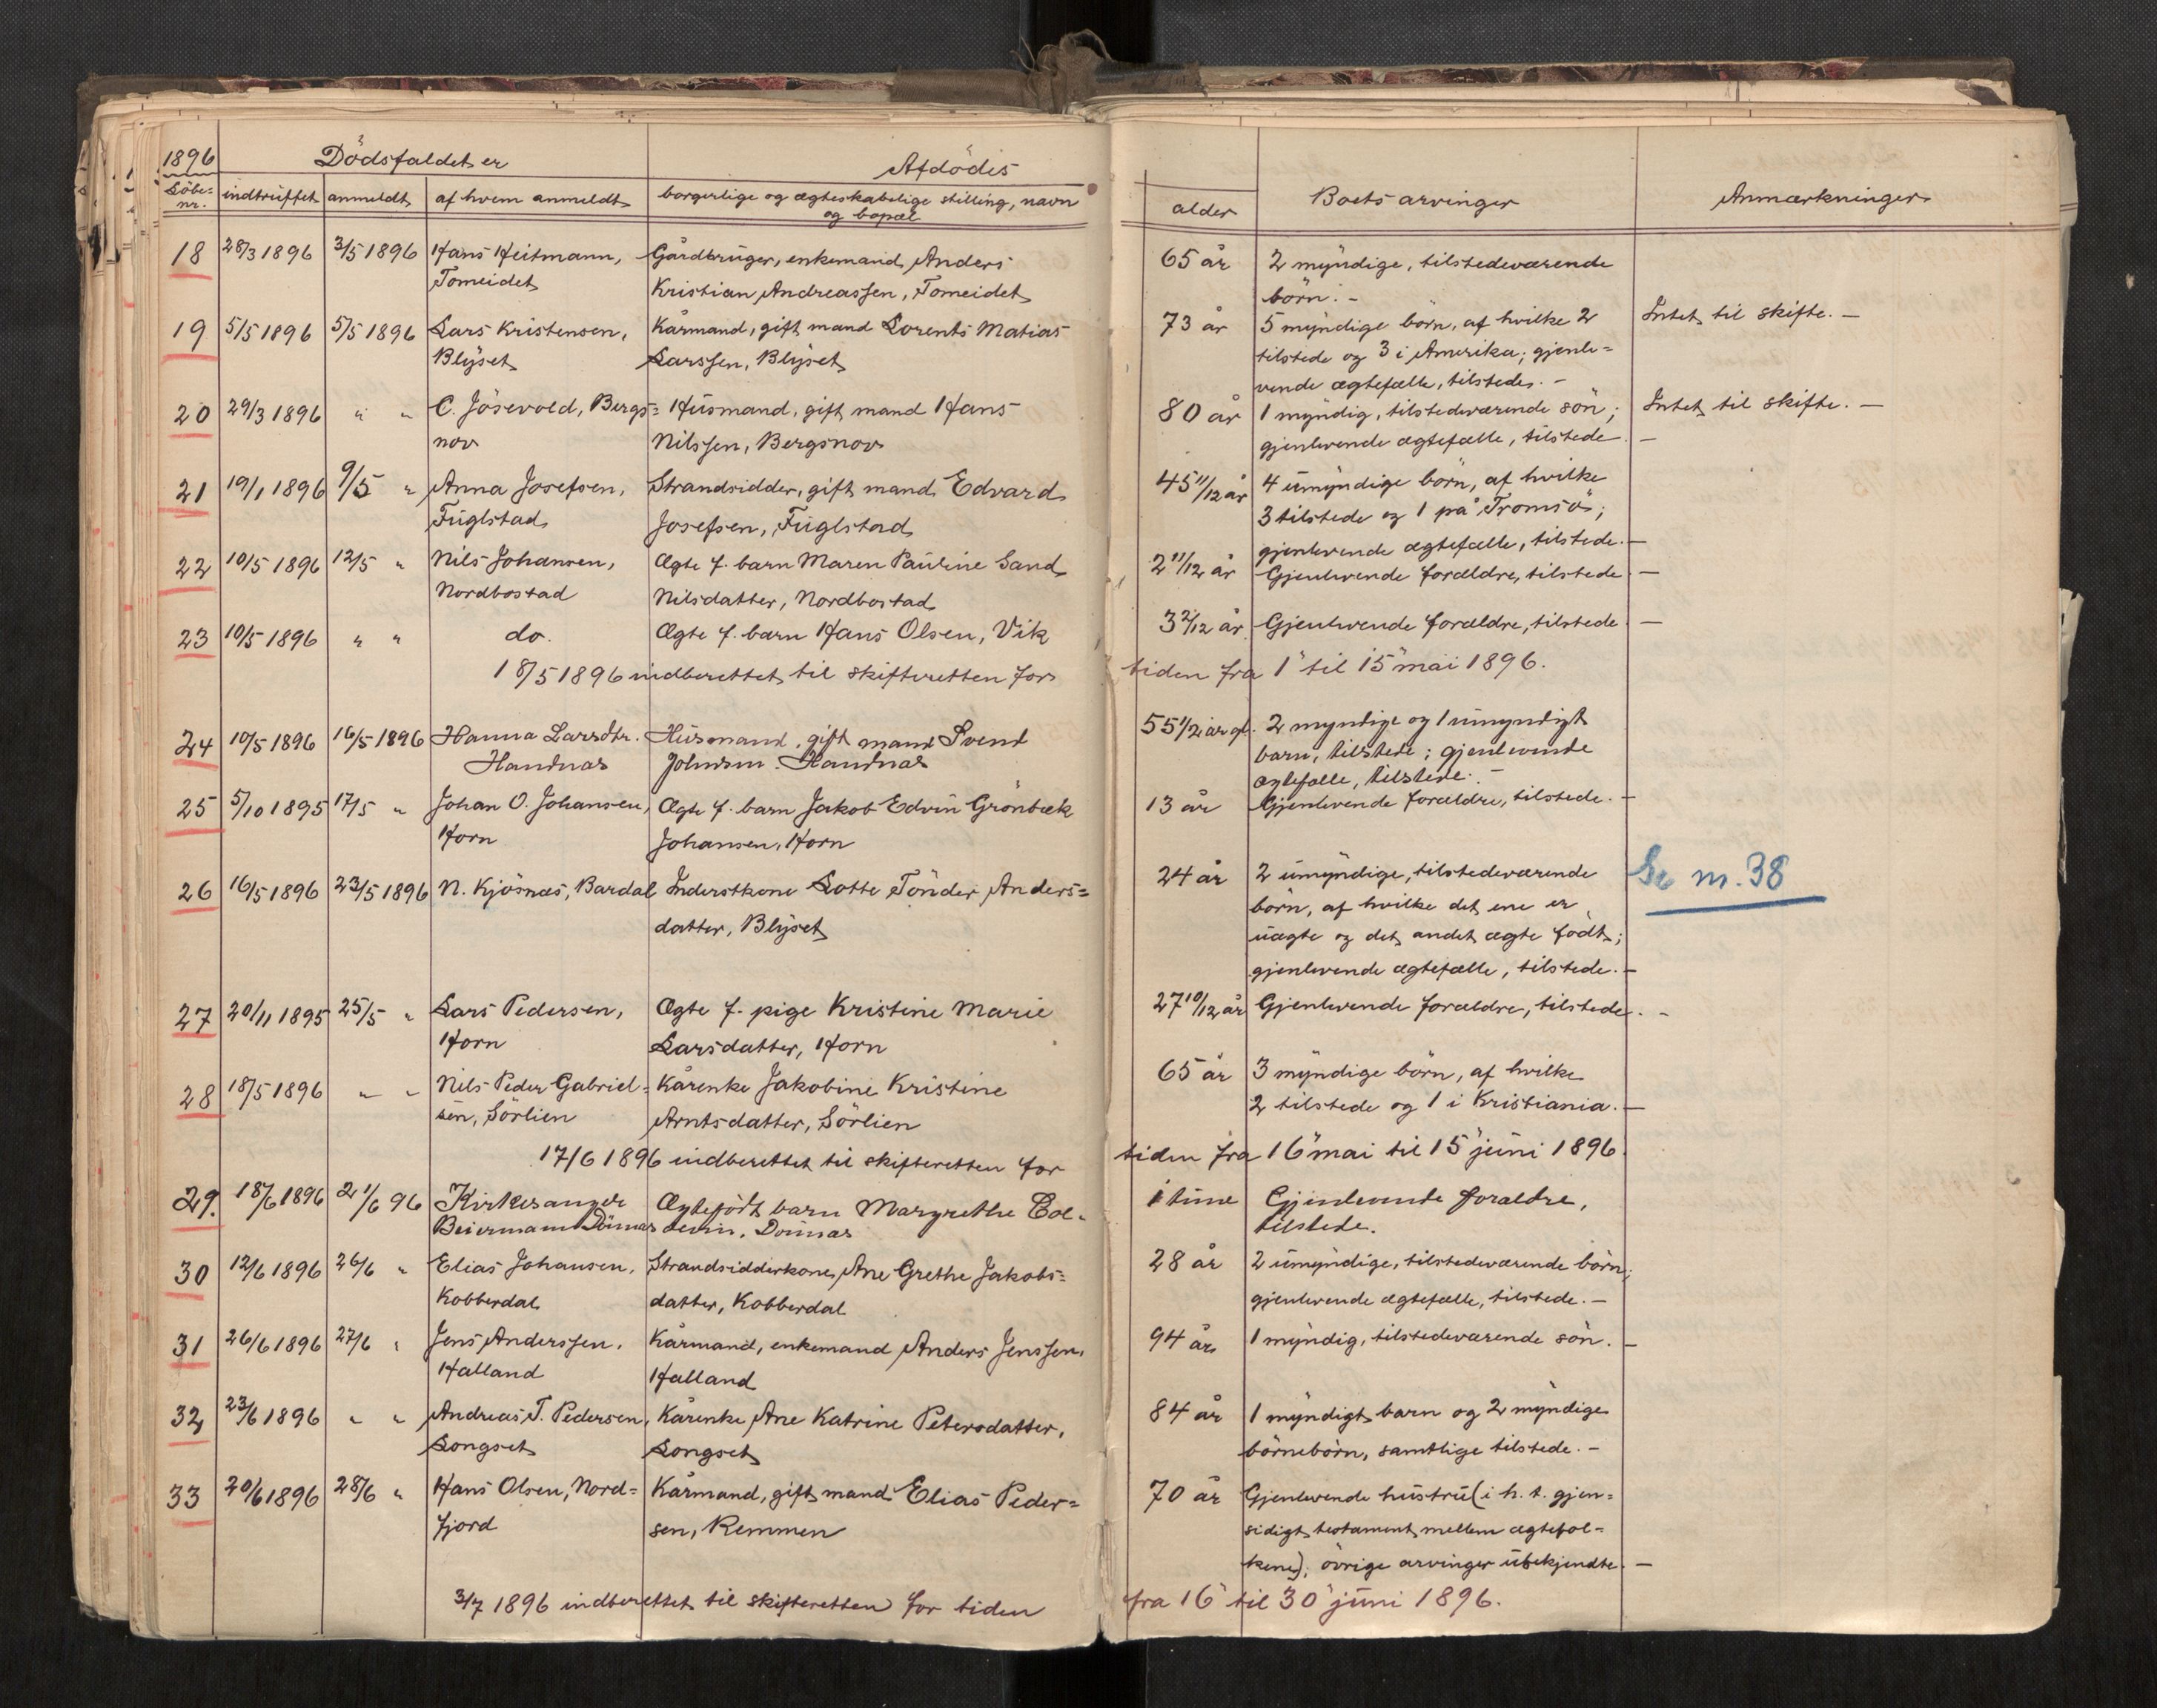 1896 Dödsfaldet er Afdödes
Löbe-nr. indtruffet anmeldt af hvem anmeldt borgerlige og ægteskabelige stilling, navn og bopæl alder Boets arvinger Anmærkninger
18 28/3 1896 3/5 1896 Hans Heitmann, Gårdbruger, enkemand Anders 65 år 2 myndige, tilstedeværende
Tomeidet Kristian Andreassen, Tomeidet börn. -
19 5/5 1896 5/5 1896 Lars Kristensen, Kårmand, gift mand Lorents Matias 73 år 5 myndige börn, af hvilke 2 Intet til skifte. -
Blyset Larssen, Blyset tilstede og 3 i Amerika; gjenle-
vende ægtefælle, tilstede. -
20 29/3 1896 " " C. Jösevold, Bergs= Husmand, gift mand Hans 80 år 1 myndig, tilstedeværende sön; Intet til skifte. -
nov Nilssen, Bergsnov gjenlevende ægtefælle, tilstede. -
21 19/1 1896 9/5 " Anna Josefsen, Strandsidder, gift mand Edvard 45 11/12 år 4 umyndige börn, af hvilke
Fuglstad Josefsen, Fuglstad 3 tilstede og 1 på Tromsö;
gjenlevende ægtefælle, tilstede. -
22 10/5 1896 12/5 " Nils Johansen, Ægte f. barn Maren Pauline Sand 2 11/12 år Gjenlevende forældre, tilstede. -
Nordbostad Nilsdatter, Nordbostad
23 10/5 1896 " " do. Ægte f. barn Hans Olsen, Vik 3 2/12 år Gjenlevende forældre, tilstede. -
18/5 1896 indberettet til skifteretten for tiden fra 1" til 15" mai 1896.
24 10/5 1896 16/5 1896 Hanna Larsdtr. Husmand, gift mand Svend 55 1/2 år gl. 2 myndige og 1 umyndigt
Handnæs Johnsen. Handnæs barn, tilstede; gjenlevende
ægtefælle, tilstede. -
25 5/10 1895 17/5 " Johan O. Johansen, Ægte f. barn Jakob Edvin Grönbæk 13 år Gjenlevende forældre, tilstede. -
Horn Johansen, Horn
26 16/5 1896 23/5 1896 N. Kjösnæs, Bardal Inderstkone Lotte Tönder Anders= 24 år 2 umyndige, tilstedeværende Se nr. 38
datter, Blyset börn, af hvilke det ene er
uægte og det andet ægte födt;
gjenlevende ægtefælle, tilstede. -
27 20/11 1895 25/5 " Lars Pedersen, Ægte f. pige Kristine Marie 27 10/12 år Gjenlevende forældre, tilstede. -
Horn Larsdatter, Horn
28 18/5 1896 " " Nils Peder Gabriel= Kårenke Jakobine Kristine 65 år 3 myndige börn, af hvilke
sen, Sörlien Arntsdatter, Sörlien 2 tilstede og 1 i Kristiania. -
17/6 1896 indberettet til skifteretten for tiden fra 16" mai til 15" juni 1896.
29. 18/6 1896 21/6 96 Kirkesanger Ægtefödt barn Margrethe Col- 1 time Gjenlevende forældre,
Beiermann Dönnæs Dönnæs tilstede.
30 12/6 1896 26/6 " Elias Johansen, Strandsidderkone Ane Grethe Jakobs= 28 år 2 umyndige, tilstedeværende börn;
Kobberdal datter, Kobberdal gjenlevende ægtefælle, tilstede. -
31 26/6 1896 27/6 " Jens Anderssen, Kårmand, enkemand Anders Jenssen, 94 år 1 myndig, tilstedeværende sön. -
Halland Halland
32 23/6 1896 " " Andreas T. Pedersen, Kårenke Ane Katrine Petersdatter, 84 år 1 myndigt barn og 2 myndige
Longset Longset börnebörn, samtlige tilstede. -
33 20/6 1896 28/6 " Hans Olsen, Nord= Kårmand, gift mand Elias Peder= 70 år Gjenlevende hustru (i h. t. gjen=
fjord sen, Remmen sidigt testament mellem ægtefol=
kene); övrige arvinger ubekjendte. -
3/7 1896 indberettet til skifteretten for tiden fra 16" til 30" juni 1896.